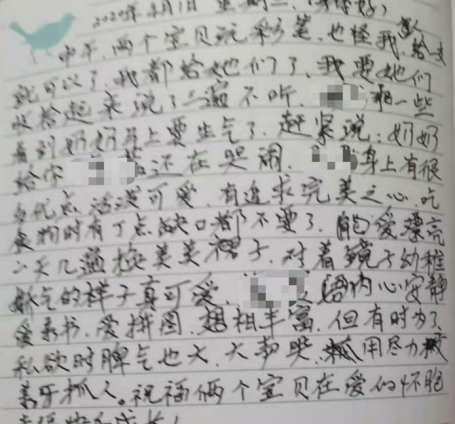 2020年4月1日 星期三、(
中午，两个宝贝玩彩笔，也怪我，给一支
就可以了，我都给她们了，我要她们
收拾起来说了三遍不听．一些
看到奶奶马上要生气了．赶紧说：奶奶
给你 还在哭闹． 身上有很
多优点 活泼可爱．有追求完美之心．吃
食物时有丁点缺口都不要了．爱漂亮
一天几遍换美美裙子．对着镜子幼稚
娇气的样子真可爱． 内心安静
爱看书．爱拼图．想相丰富．但有时为了
私欲时脾气也大．大劲哭．用尽力
抓人。祝福俩个宝贝在爱的怀胞
成长！